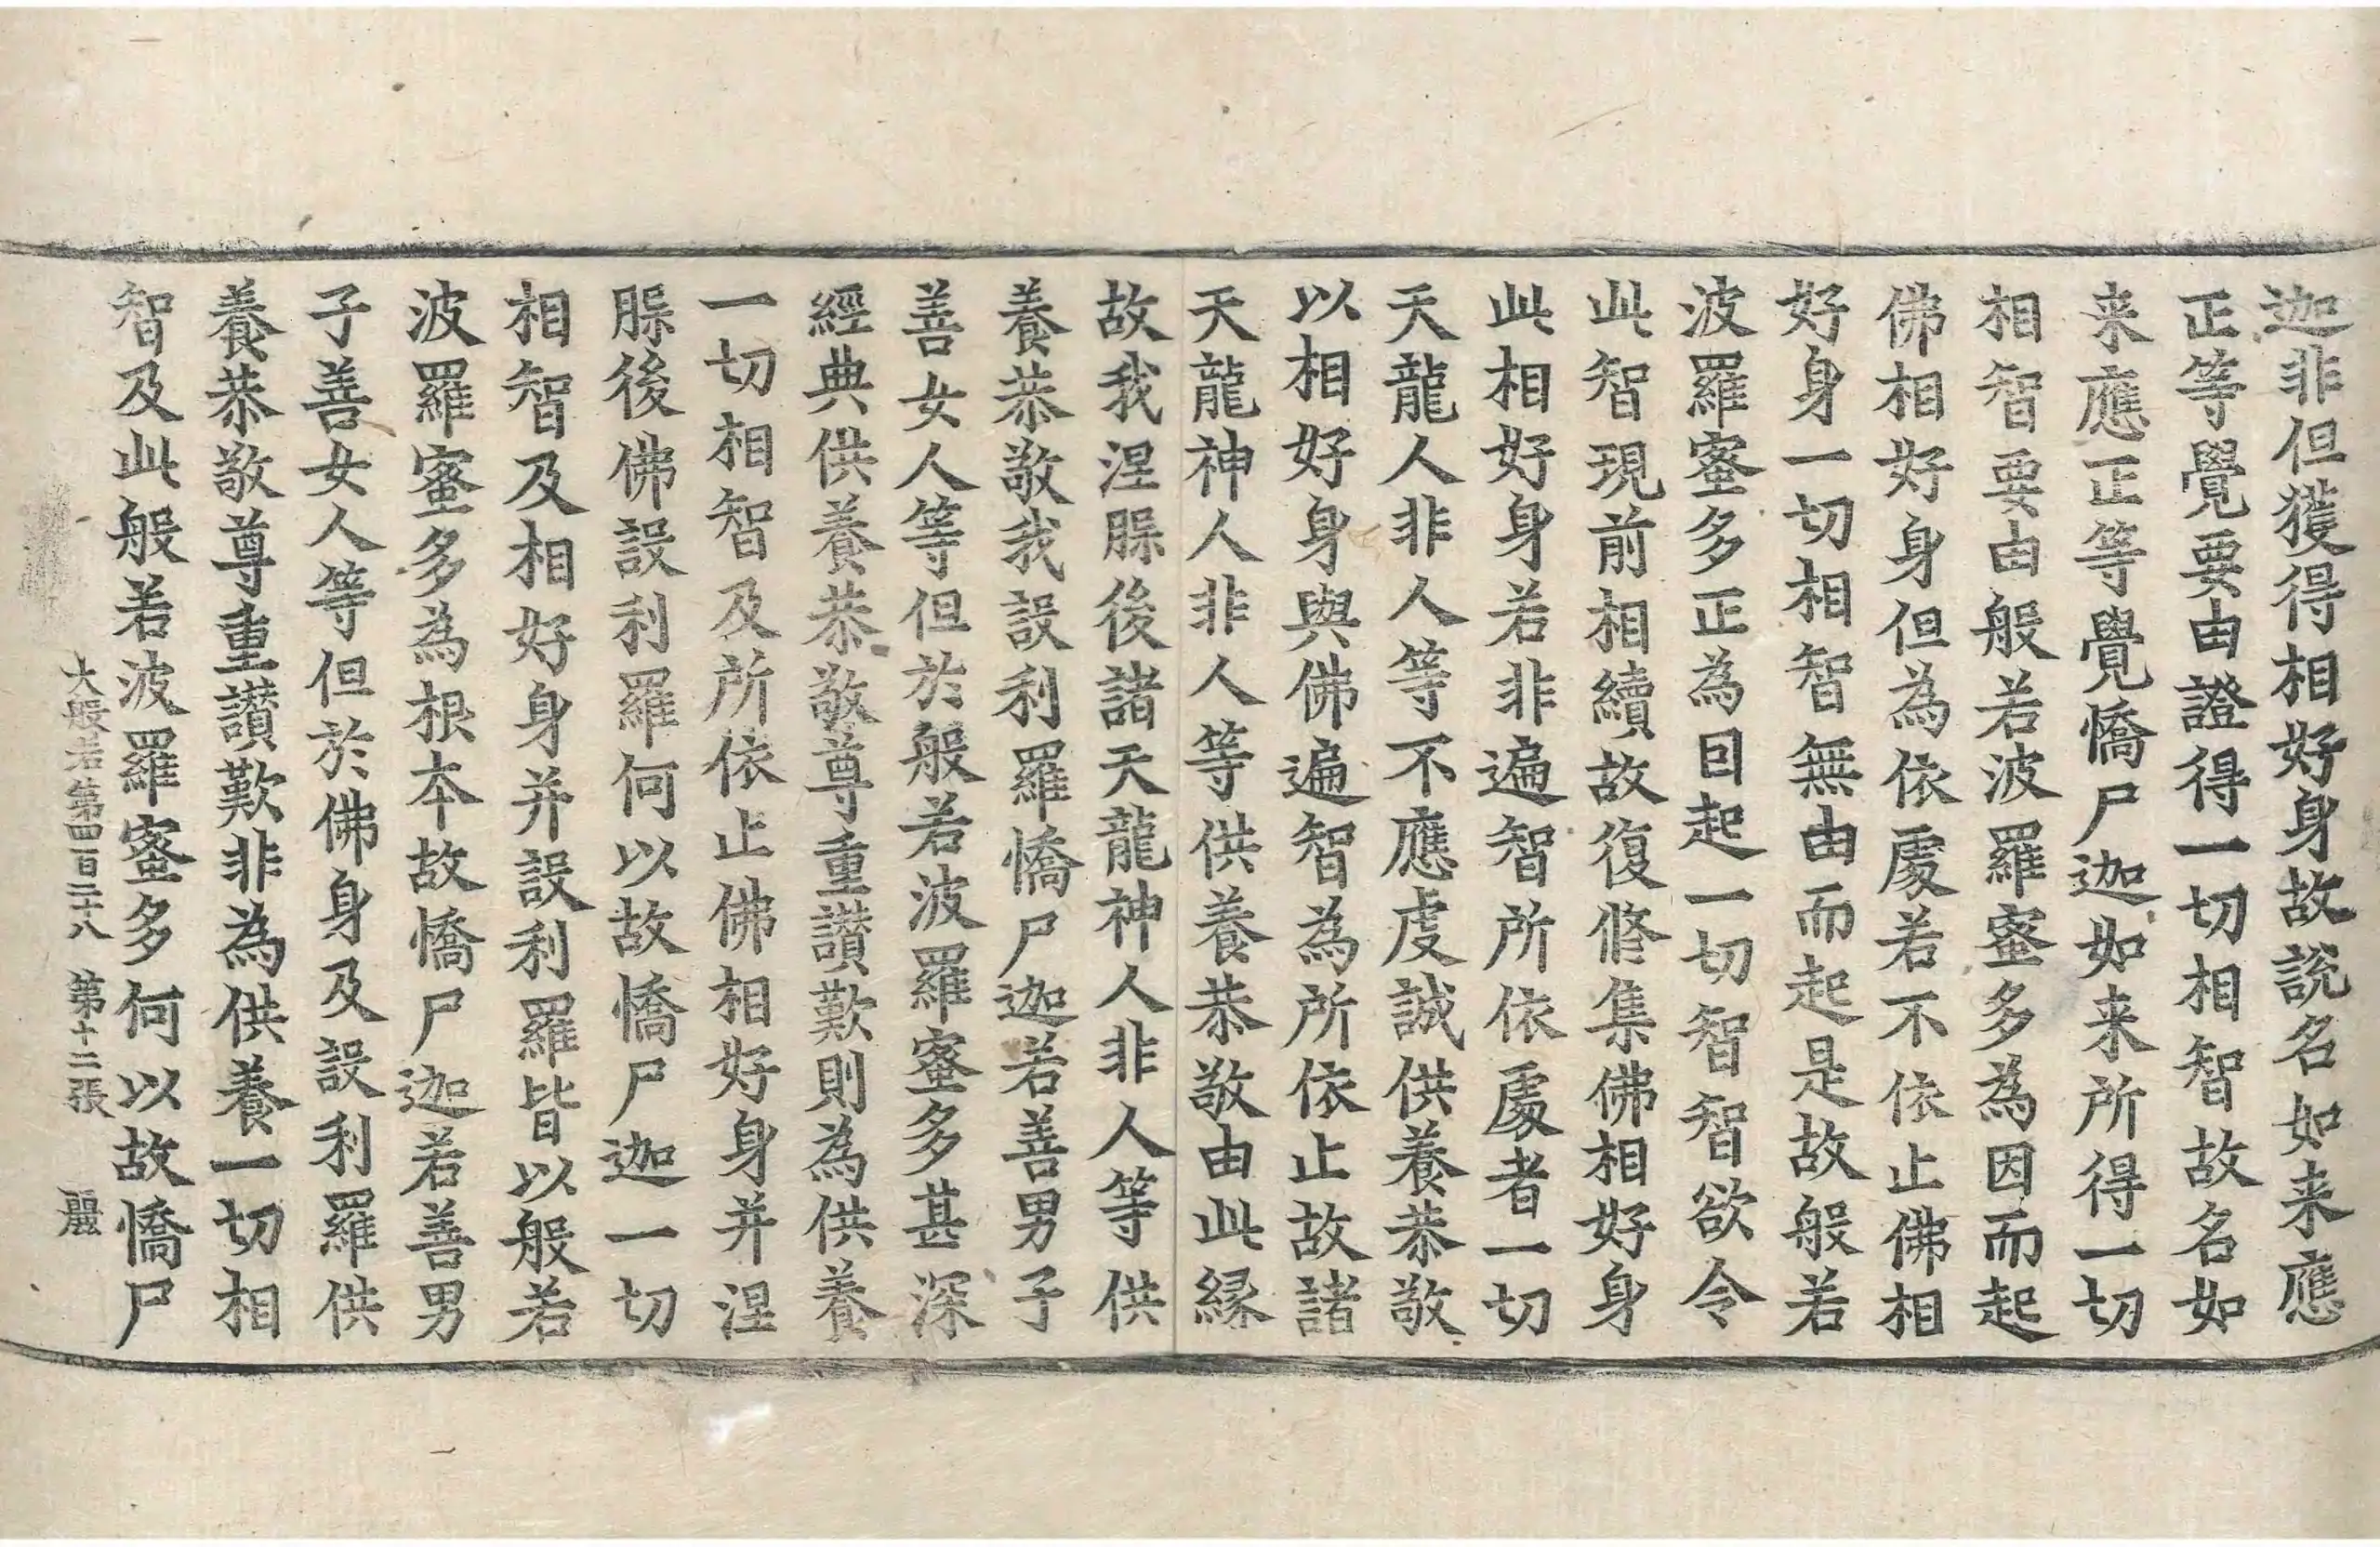 迦非但獲得相好身故說名如来應
正等覺要由證得一切相智故名如
来應正等覺憍尸迦如来所得一切
相智要由般若波羅蜜多為因而起
佛相好身但為依處若不依止佛相
好身一切相智無由而起是故般若
波羅蜜多正為因起一切智智欲令
此智現前相續故復修集佛相好身
此相好身若非遍智所依處者一切
天龍人非人等不應虔誠供養恭敬
以相好身與佛遍智為所依止故諸
天龍神人非人等供養恭敬由此縁
故我涅脲後諸天龍神人非人等供
養恭敬我設利羅憍尸迦若善男子
善女人等但於般若波羅蜜多甚深
經典供養恭敬尊重讚歎則為供養
一切相智及所依止佛相好身并涅
脲後佛設利羅何以故憍尸迦一切
相智及相好身并設利羅皆以般若
波羅蜜多為根本故憍尸迦若善男
子善女人等但於佛身及設利羅供
養恭敬尊重讚歎非為供養一切相
智及此般若波羅蜜多何以故憍尸
大般若第四百二十八 第十二張 麗